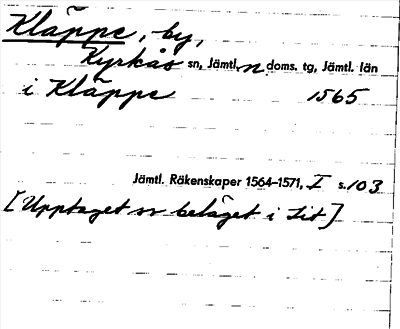 Kläppe, by,
Kyrkås sn, Jämtl. n doms. tg, Jämtl. län
i Kläppe 1565
Jämtl. Räkenskaper 1564-1571, I s. 103
[Upptaget sv beläget i Lit]